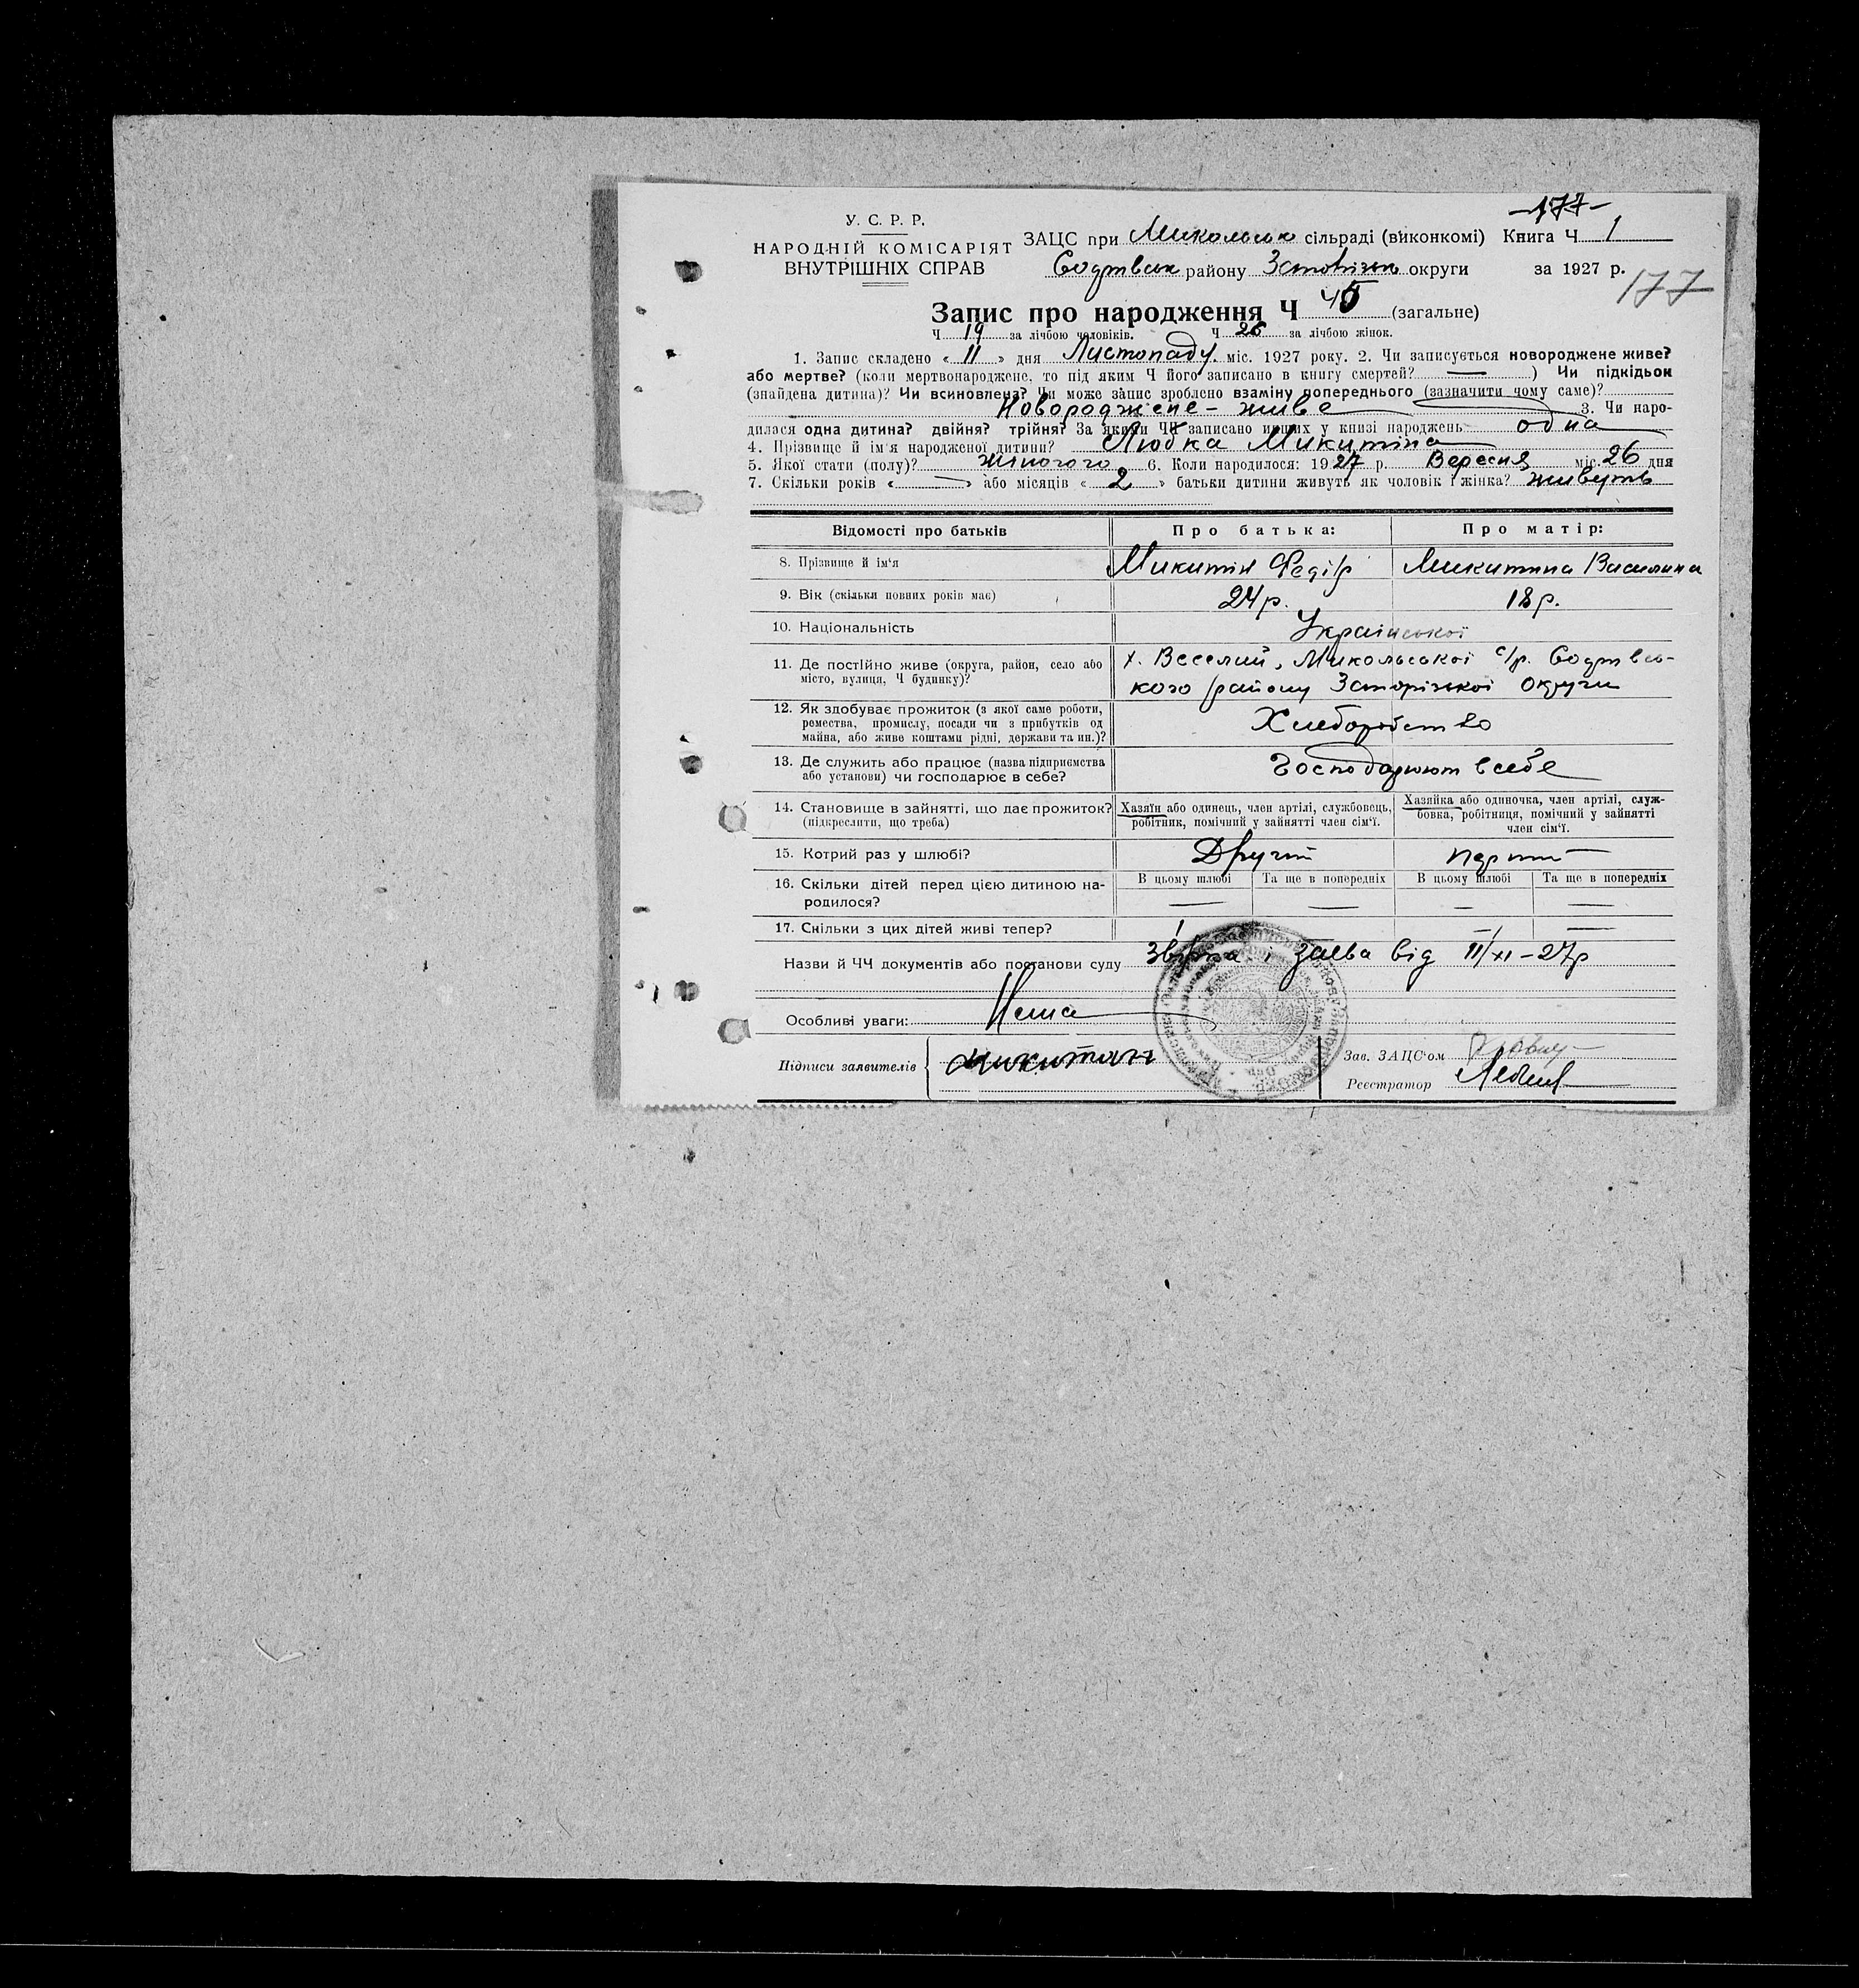 -177-
У. С. Р. Р.
НАРОДНІЙ КОМІСАРІЯТ
ВНУТРІШНІХ СПРАВ
ЗАЦС при Микольсько сільраді (виконкомі) Книга Ч 1
району округи за 1927 р.
177
Запис про народження Ч 45 (загальне)
Ч 19 за лічбою чоловіків. Ч 26 за лічбою жінок.
1. Запис складено « 11 » дня Листопаду міс. 1927 року. 2. Чи записується новороджене живе?
або мертве? (коли мертвонароджене, то під яким Ч його записано в книгу смертей? — ) Чи підкідьок
(знайдена дитина)? Чи всиновлена? Чи може запис зроблено взаміну попереднього (зазначити чому саме)?
Новороджене - живе 3. Чи наро-
дилася одна дитина? двійня? трійня? За якими ЧЧ записано инших у книзі народжень одна
4. Прізвище й ім'я народженої дитини? Любка Микитіна
5. Якої стати (полу)? жіночого 6. Коли народилося: 1927 р. Вересня міс. 26 дня
7. Скільки років « — » або місяців « 2 » батьки дитини живуть як чоловік і жінка? живуть
Відомості про батьків Про батька: Про матір:
8. Прізвище й ім'я Микитін Федір Микитина Василина
9. Вік (скільки повних років має) 24 р. 18 р.
10. Національність Української
11. Де постійно живе (округа, район, село або
місто, вулиця, Ч будинку)?
х. Веселий, Микольської с/р.
кого району Запорізької Округи
12. Як здобуває прожиток (з якої саме роботи,
ремества, промислу, посади чи з прибутків од
майна, або живе коштами рідні, держави та ин.)?
Хліборобство
13. Де служить або працює (назва підприємства
або установи) чи господарює в себе?
Господарюют в себе
14. Становище в зайнятті, що дає прожиток?
(підкреслити, що треба)
Хазяїн або одинець, член артілі, службовець,
робітник, помічний у зайнятті член сім'ї.
Хазяйка або одиночка, член артілі, служ-
бовка, робітниця, помічний у зайнятті
член сім'ї.
15. Котрий раз у шлюбі? Другий перший
16. Скільки дітей перед цією дитиною на-
родилося?
В цьому шлюбі Та ще в попередніх В цьому шлюбі Та ще в попередніх
— — — —
17. Скільки з цих дітей живі тепер?
Назви й ЧЧ документів або постанови суду заява від 11/XI - 27р
Особливі уваги: Нема
Підписи заявителів Микитин
Зав. ЗАЦС'ом
Реєстратор